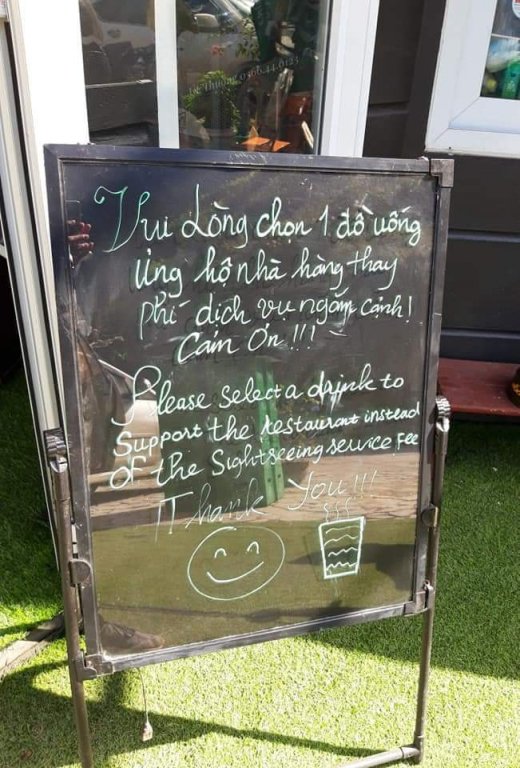 Vui Lòng chọn 1 đồ uống
ủng hộ nhà hàng thay
phí dịch vụ ngắm cảnh!
Cám Ơn !!!
Please select a drink to
Support the restaurant instead
OF the Sightseeing service Fee
Thank You !!!